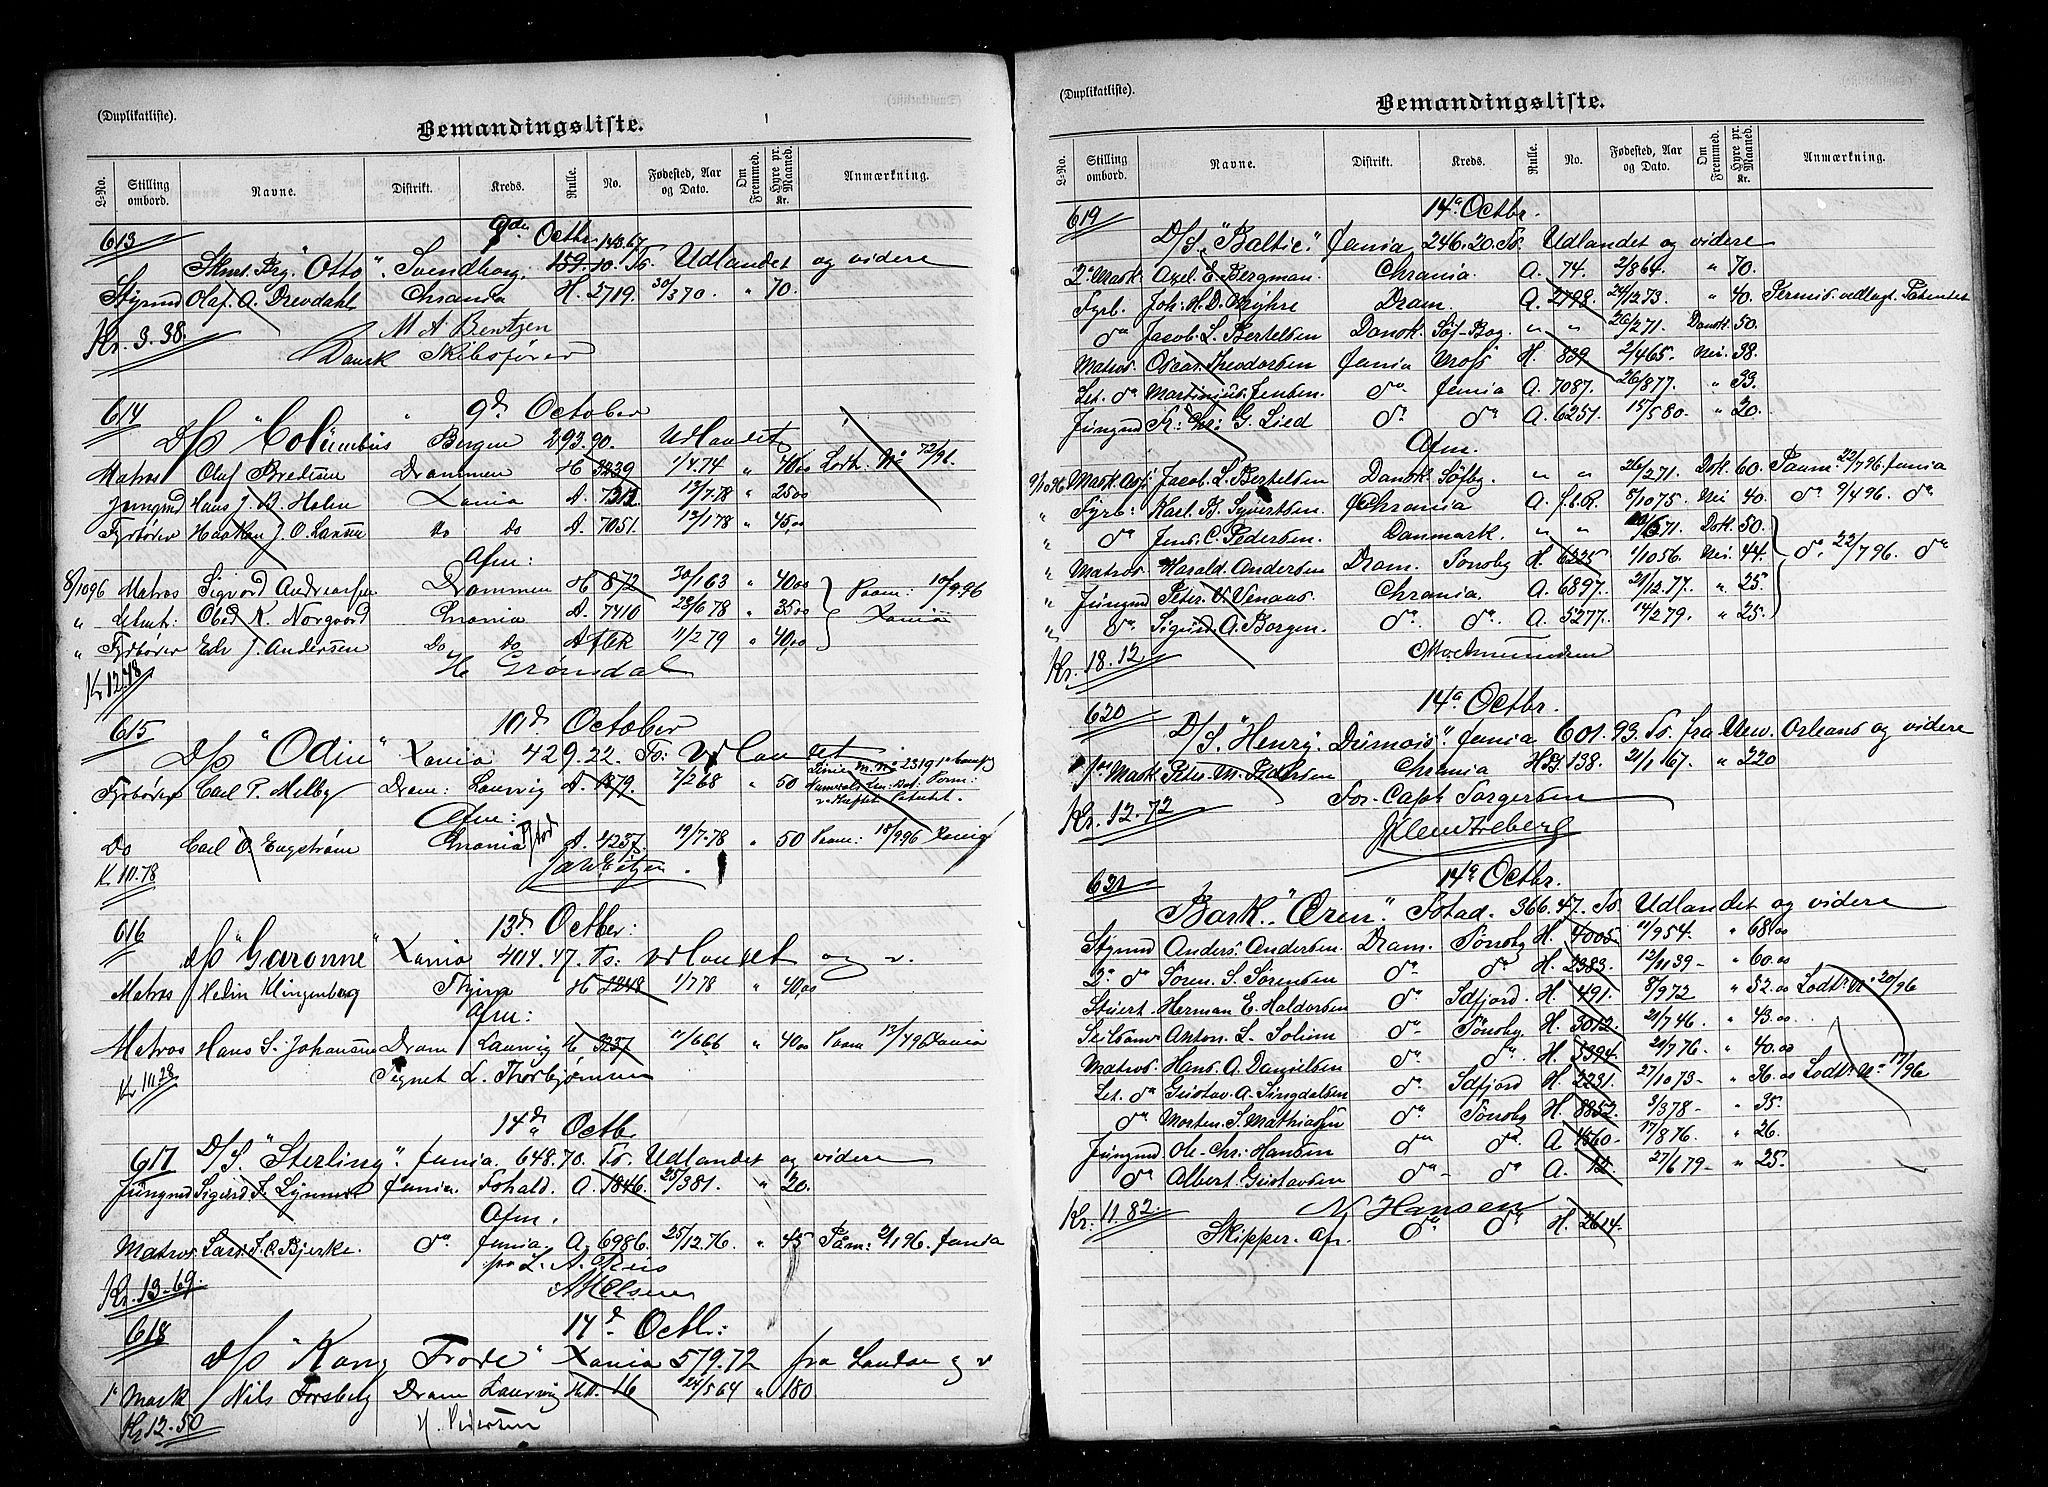 (Duplikatliste).
Bemandingsliste.
L-No. Stilling ombord. Navne. Distrikt. Kreds. Rulle. No. Fødested, Aar og Dato. Om Fremmed. Hyre pr. Maaned. Kr. Anmærkning.
613 9de Octbr.
143.67
Skrut. Brg. "Otto". Svendborg. 159.10. To. Udlandet og videre
Styrmd Olaf. A. Drevdahl Chrania H. 2719. 30/3 70. " 70.
Kr. 3.38. M A Bentzen
Dansk Skibsfører
614 9d October
D/S "Columbus" Bergen 293.90. Udlandet
Matros Oluf Bredesen Drammen H 3239 1/4.74 " 40,00 Lodt. No 72/96.
Jungmd Hans J. B. Holm Xania A. 7312 13/7.78 " 25,00
Fyrbøter Haakon J. O. Larsen Do Do A. 7051. 12/1 78 " 45,00
Afm:
8/10 96 Matros Sigvord Andreassen Drammen H 872 30/1 63 " 40,00 Paam: 10/9.96
" Letmtr: Obed K. Norgvord Chrania A. 7410 28/6 78 " 35,00 Xania
" Fyrbøter Edv J. Andersen Do Do A flk 11/2 79 " 40,00
Kr 12.48 H Grøndal
615 10d October
D/S "Odin" Xania 429.22. To: Udlandet
Fyrbøter Carl P. Melby Dram: Laurvig A. 1379. 7/2 68 " 50
Afm:
Do Carl O Engstrøm Chrania A. 4237. 19/7.78 " 50 Paam: 18/9 96 Xania
K. 10.78
616 13d Octber:
D/S "Garonne" Xania 404.47. To: Udlandet og v.
Matros Hedin Klingenberg Thjem H 1248 1/7 78 " 40,00
Afm:
Matros Hans S. Johansen Dram Laurvig H 3237 11/6 66 " 40,00 Paam 13/4 96 Xania
Kr 10.28 Tegnet L. Thorbjørnsen
14d Octb.
617 D/S. "Sterling". Xania. 648.70. To. Udlandet og videre
Jungmd Sigurd F. Lynner Xania. Fshald. A. 1846. 25/3 81. " 20.
Afm.
Matros. Lars. F. C. Bjerke. do Xania. A. 6986. 25/12.76. " 45 Påm: 2/1 96. Xania
Kr. 13.69. pro L. A. Reis
A Nelsen
618 14d Octbr:
D/S "Kong Frode" Xania 579.72 fra London og v
1e Mask Nils Forsberg Dram Laurvig HA. 16 24/5 64 " 180.
Kr 12.50 H. Pedersen
(Duplikatliste).
Bemandingsliste.
L-No. Stilling ombord. Navne. Distrikt. Kreds. Rulle. No. Fødested, Aar og Dato. Om Fremmed. Hyre pr. Maaned. Kr. Anmærkning.
619 14d Octbr.
D/S. "Baltic." Xania 246.20. To. Udlandet og videre
2e Mask Axel. E. Bergman. Chrania. A. 74. 2/8 64. " 70.
Fyrb. Joh: H. D. Myhre Dram. A. 2798. 24/12 73. " 40.
do Jacob. L. Bertelsen Dansk Søf-Bog " " 26/2 71. Dansk 50.
Matros. Oscar. Theodorsen Xania Moss H. 839 2/4 65. Nei. 38.
Let. do Martinius. Jensen. do Xania A. 7087. 26/8 77. " 33.
Jungmd Fr: Chr: G. Lied do do A. 6257. 15/5 80. " 20.
Afm.
9/10 96 Mask. Ass Jacob. L. Bertelsen Dansk Søfbg. " " 26/2 71. Dsk. 60. Paam: 22/7 96. Xania
" Fyrb: Karl. B. Syvertsen. Chrania A. f.l.R. 8/10 75. Nei 40. do 9/4 96. do
" do Jens. C. Pedersen. Danmark. " " 20/6 71. Dsk. 50.
" Matros Harald. Andersen Dram. Tønsbg H. 6225 1/10 56. Nei. 44. do. 22/7 96. do
" Jungmd Peter. V. Venaas Chrania. A. 6897. 21/12.77. " 25.
" do. Sigurd. A. Borgen. do. do. A. 5277. 14/2 79. " 25.
Kr. 18.12.
620 14d Octbr.
D/S "Henry. Dumois". Xania 601.93. To. fra New. Orleans og videre
1ste Mask. Peter. M. Pedersen Chrania HB. 138. 21/1 67. " 220
Kr. 12.72 For. Capt. Torgersen
621 14d Octbr.
Bark. "Ørn". Fstad. 366.47. To. Udlandet og videre
Styrmd Anders. Andersen Dram. Tønsbg H. 4005. 11/9 54. " 68.00
2. do Søren. S. Sørensen do do H. 2383. 12/11 39 - " 60.00
Stuert. Herman E. Haldorsen do Sdfjord. H. 491. 8/9 72 " 52.00 Lodt. No 20/96
Seilsmr Anton. L. Solum do Tønsbg. H. 3012. 21/7 46. " 43.00
Matros. Hans. A. Danielsen do do. H. 5394. 20/7 76. " 40.00
Let. do Gustav. A. Singdalsen do Sdfjord H. 2231. 27/10 73 - " 36.00 Lodt. No 17/96
do Morten. S. Mathiasen do Tønsbg H. 8852. 3/3 78 - " 35.
Jungmd Ole. Chr. Hansen do do. A. 4560. 17/8 76. " 26.
do Albert. Gustavsen do - do. A. 12. 27/6 79 - " 25.
Kr. 11.82. N Hansen
Skipper. Afr. do do H. 2614.